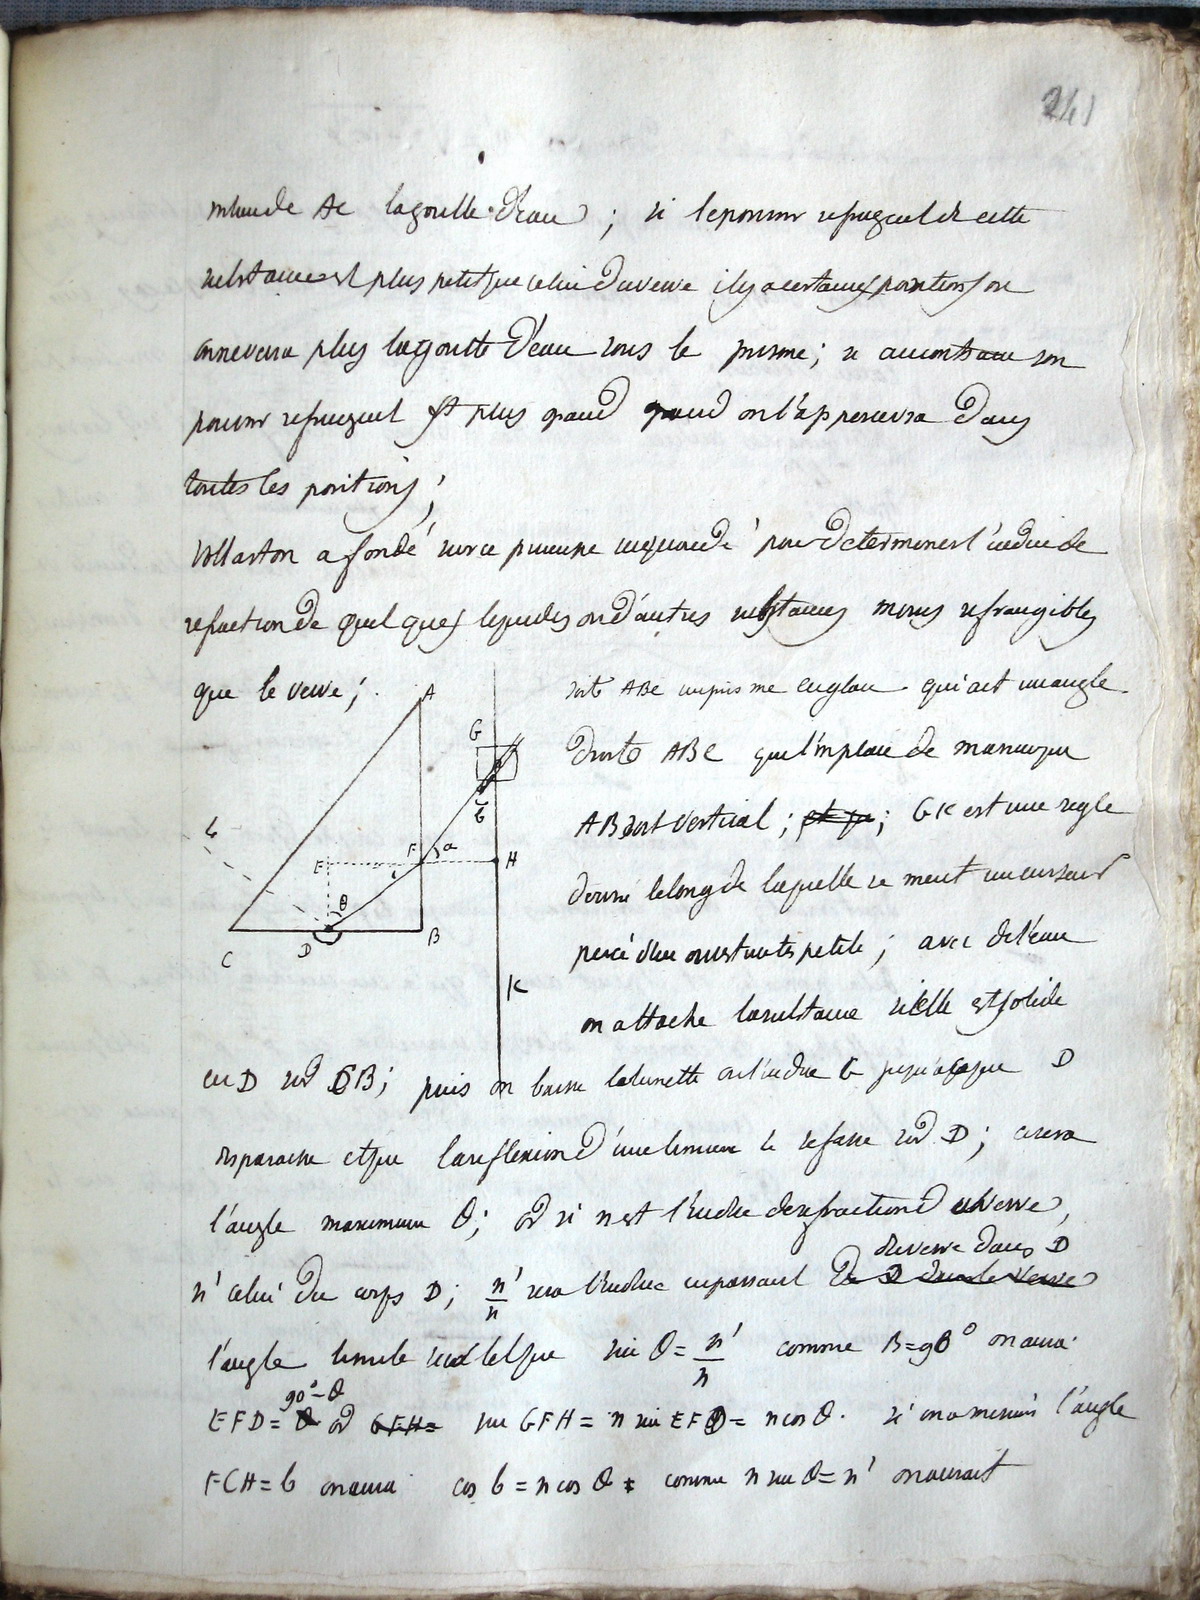 241
AC la goutte d'eau ; si le pouvoir refringent de cette
substance est plus petit que celui du verre il y a certaines positions où
on ne verra plus la goutte d'eau sous le prisme ; si au contraire son
pouvoir refringent est plus grand grand on l'appercevra dans
toutes les positions ;
Vollaston a fondé sur ce principe un procédé pour determiner l'indice de
refraction de quelques liquides ou d'autres substances moins refrangibles
que le verre ;
soit ABC un prisme en glace qui ait un angle
droit ABC que l'on place de maniere que
AB soit vertical ; ; GK est une regle
divisé le long de laquelle se meut un curseur
percé d'une ouverture très petite ; avec de l'eau
on attache la substance si elle est solide
en D sur CB ; puis on baisse la lunette ou l'index G jusqu'à ce que D
disparaisse et que la reflexion d'une lumiere se fasse sur D ; ce sera
l'angle maximum θ ; or si n est l'indice de refraction du verre,
du verre dans D
n' celui du corps D ; n'/n sera l'indice en passant de D dans le verre
l'angle limite sera tel que sin θ = n'/n comme B = 90° on aura
90°-θ
EFD = θ or GFH = sin GFH = n sin EFD = n cos θ. si on a mesuré l'angle
FGH = b on aura cos b = n cos θ comme n sin θ = n' on aurait
A
G
b
F
a
H
E
i
θ
C
D
B
K